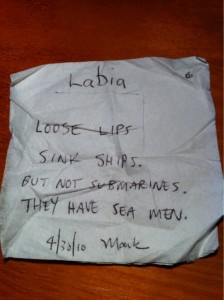 Labia
LOOSE LIPS
SINK SHIPS.
BUT NOT SUBMARINES.
THEY HAVE SEA MEN.
4/30/10 Mark